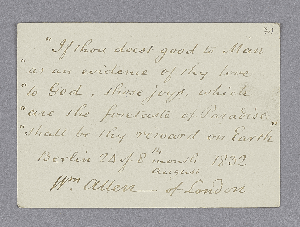 "If thou doest good to Man
"as an evidence of thy love
"to God, those joys, which
"are the foretaste of Paradise,
"shall be thy reward on Earth"
Berlin 24 of 8th month 1832
August
Wm Allen - of London